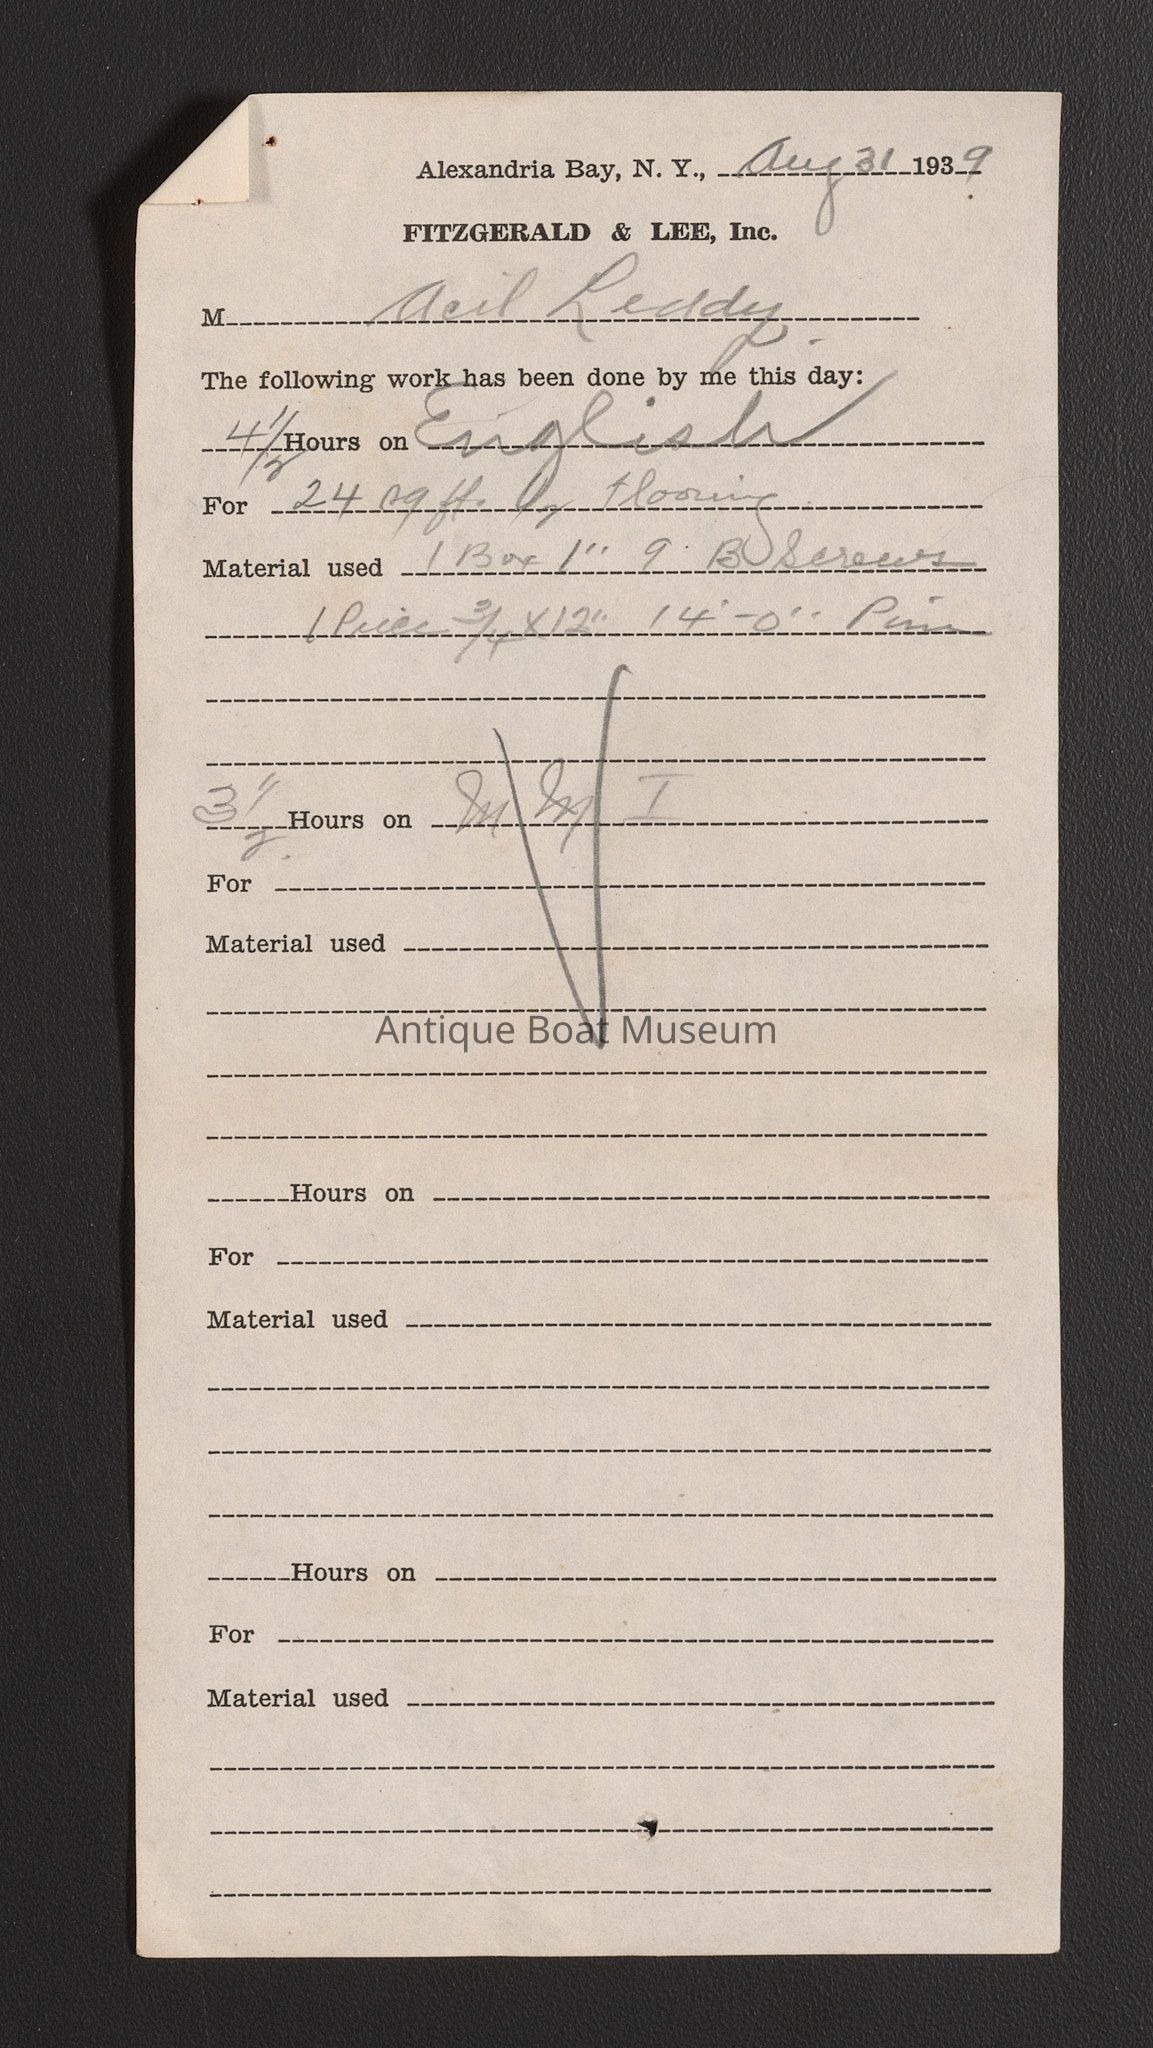 Alexandria Bay, N. Y., Aug 31 1939
FITZGERALD & LEE, Inc.
M Acil Leddy.
The following work has been done by me this day:
4 1/2 Hours on English
For 24 sq ft. flooring
Material used 1 Box 1" 9 B Screws
1 Piece 3/4 X 12" 14'-0" Pine
3 1/2 Hours on M M I
For
Material used
Antique Boat Museum
Hours on
For
Material used
Hours on
For
Material used